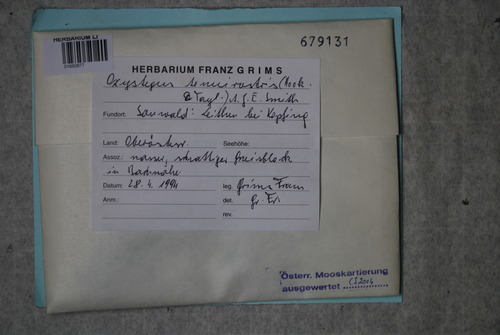 HERBARIUM LI
679131
HERBARIUM FRANZ GRIMS
Oxystegus tenuirostris (Hook.
& Tayl.) A. J. E. Smith
Fundort: Sauwald: Leithen bei Kopfing
Land: Oberösterr. Seehöhe:
Assoz.: nasser, schattiger Gneisblock
in Bachnähe
Datum: 28. 4. 1994 leg. Grims Franz
Anm.: det. Gr. Fr.
rev.
Österr. Mooskartierung
ausgewertet